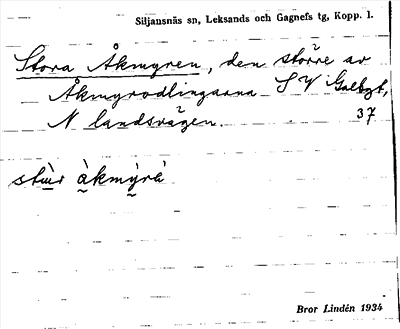 Siljansnäs sn, Leksands och Gagnefs tg, Kopp. l.
Stora Åkmyren, den större av
Åkmyrodlingarna S V Galbgt,
N landsvägen. 37
stùr àkmỳrà
Bror Lindén 1934